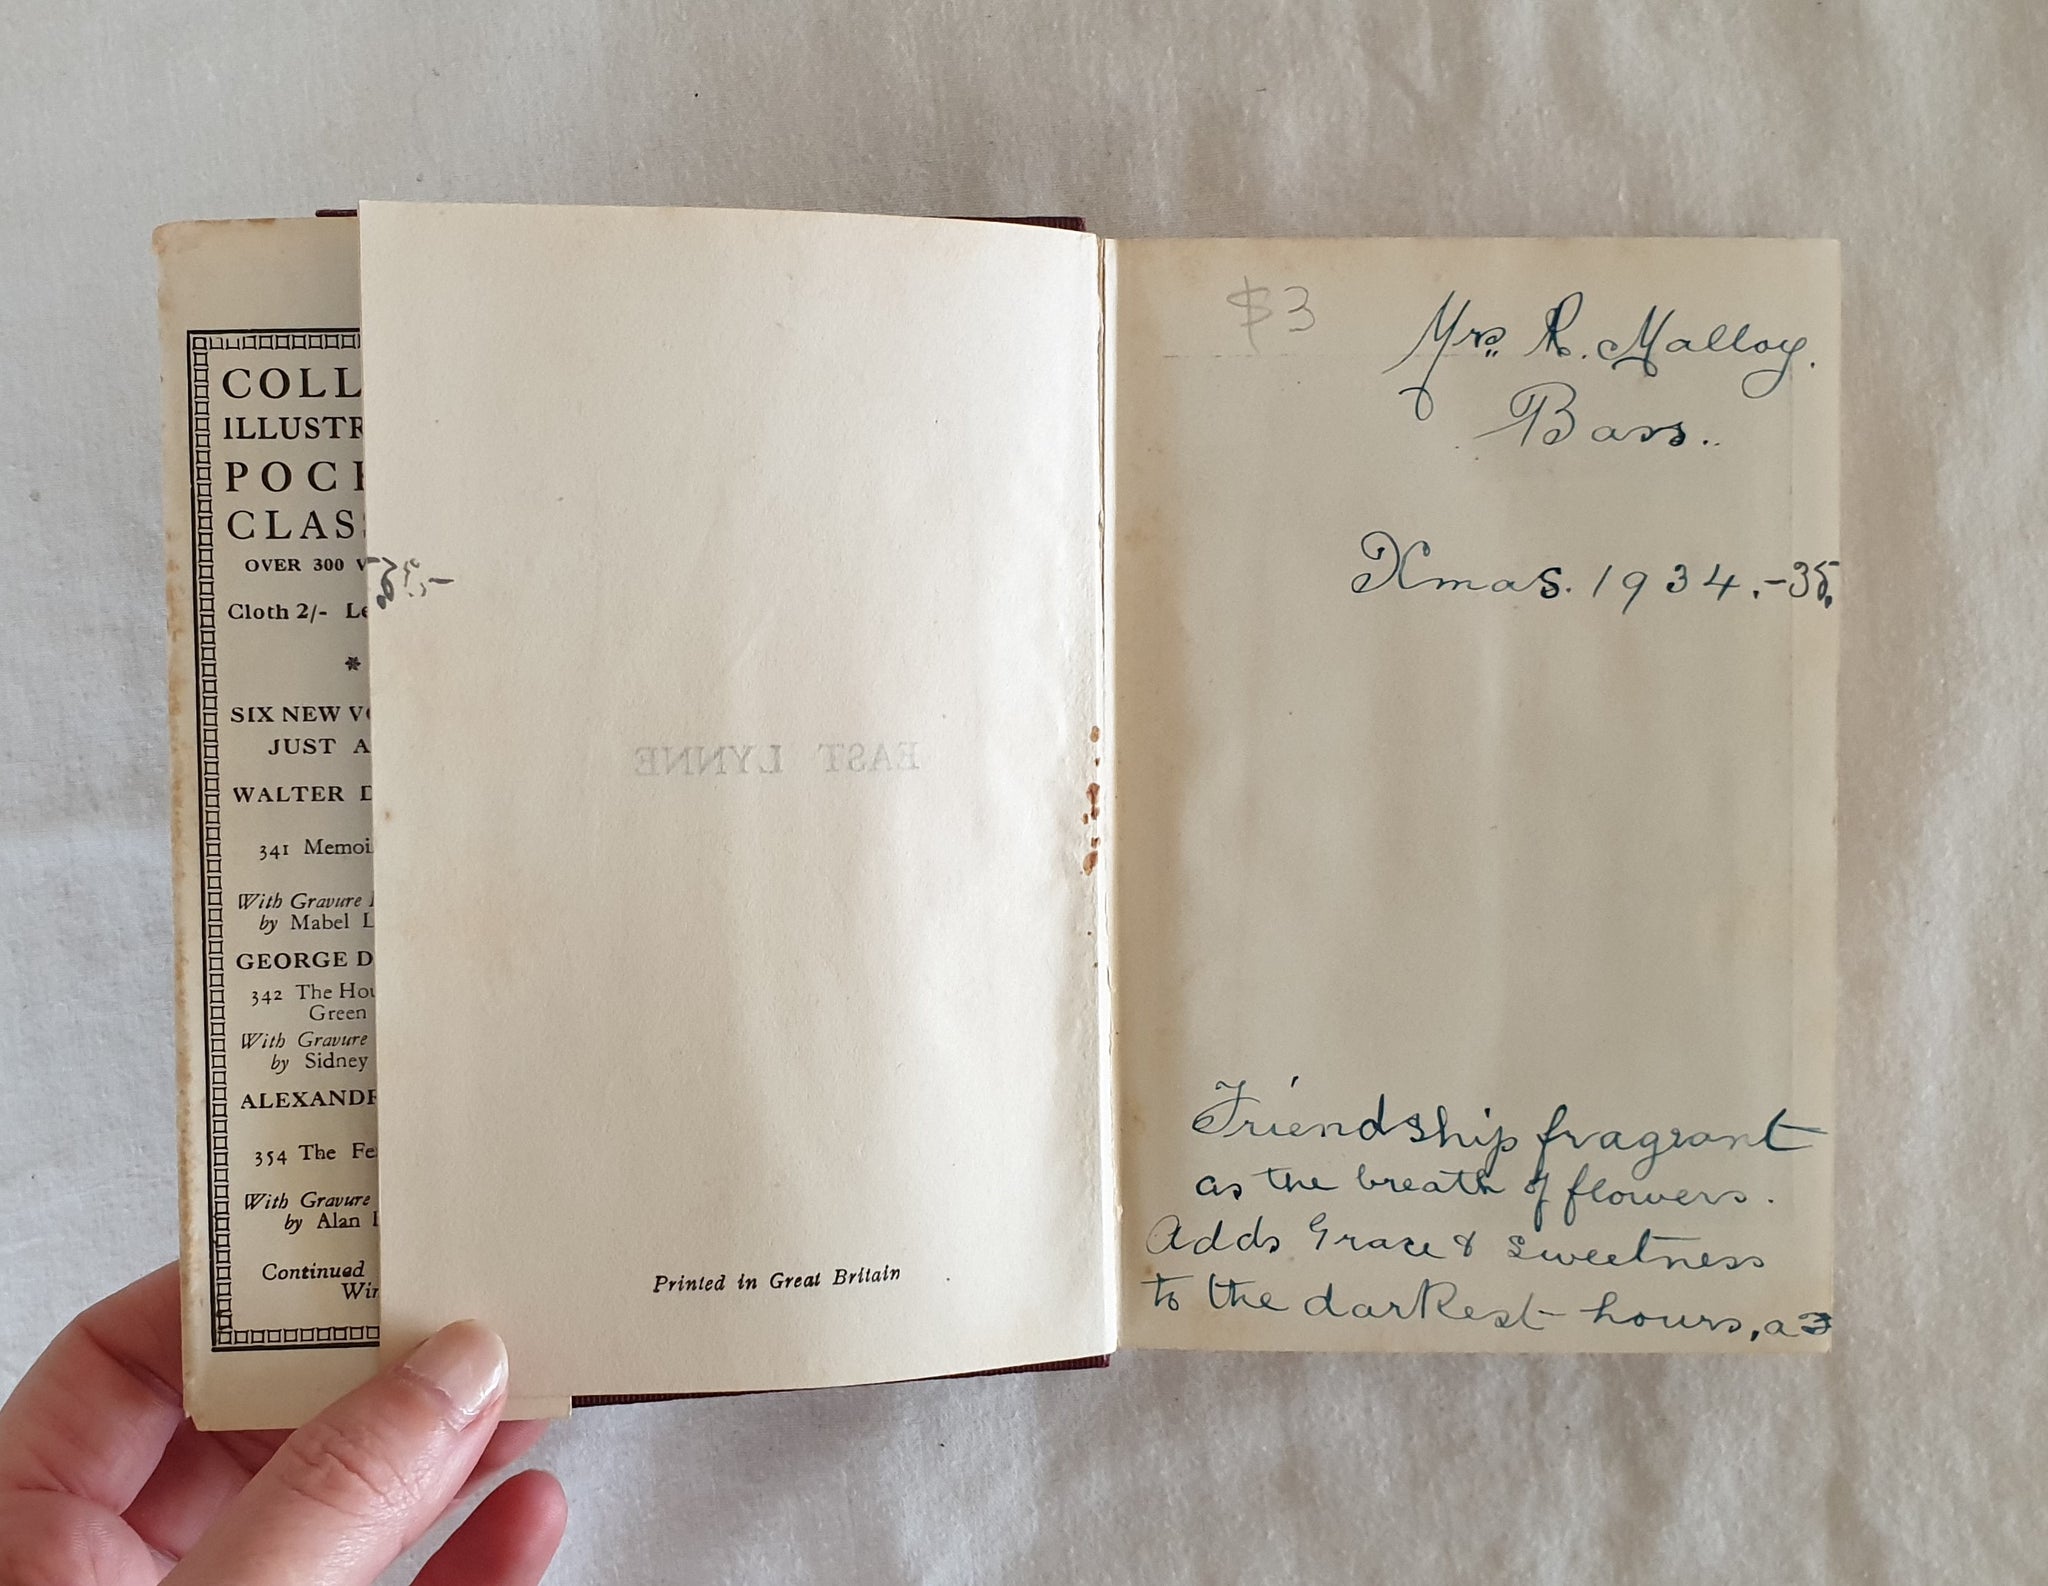 COLL
ILLUSTR
POCK
CLASS
OVER 300 V
Cloth 2/- Le
*
SIX NEW VO
JUST A
WALTER D
341 Memoi
With Gravure
by Mabel L
GEORGE D
342 The Hou
Green
With Gravure
by Sidney
ALEXANDR
354 The Fe
With Gravure
by Alan
Continued
Wi
EAST LYNNE
Printed in Great Britain
$3
Mrs. R. Malloy.
Bass..
Xmas. 1934.-35.
Friendship fragrant
as the breath of flowers.
Adds Grace & Sweetness
to the darkest hours, as